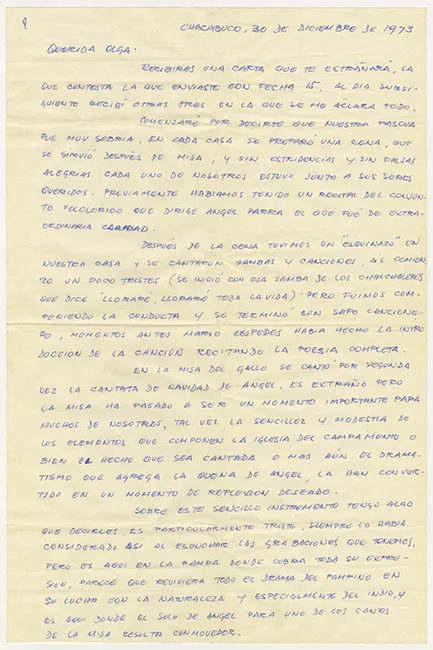 CHACABUCO, 30 DE DICIEMBRE DE 1973
QUERIDA OLGA:
RECIBIRAS UNA CARTA QUE TE EXTRAÑARÁ, LA
QUE CONTESTA LA QUE ENVIASTE CON FECHA 15. AL DIA SUBSI-
QUIENTE RECIBI OTRAS TRES EN LA QUE SE ME ACLARA TODO.
COMENZARÉ POR DECIRTE QUE NUESTRA PASCUA
FUE MUY SOBRIA, EN CADA CASA SE PREPARÓ UNA CENA, QUE
SE SIRVIÓ DESPUÉS DE MISA, Y SIN ESTRIDENCIAS Y SIN FALSAS
ALEGRIAS CADA UNO DE NOSOTROS ESTUVO JUNTO A SUS SERES
QUERIDOS. PREVIAMENTE HABIAMOS TENIDO UN RECITAL DEL CONJUN-
TO FOLCLORICO QUE DIRIGE ANGEL PARRA EL QUE FUÉ DE EXTRA-
ORDINARIA CALIDAD.
DESPUÉS DE LA CENA TUVIMOS UN "ESQUINAZO" EN
NUESTRA CASA Y SE CANTARON SAMBAS Y CANCIONES, AL COMIEN
ZO UN POCO TRISTES (SE INICIÓ CON ESA SAMBA DE LOS CHALCHALEROS
QUE DICE "LLORARÉ, LLORARÉ TODA LA VIDA) PERO FUIMOS COM-
PONIENDO LA CONDUCTA Y SE TERMINÓ CON SAPO CANCIONE-
RO, MOMENTOS ANTES MARIO CESPEDES HABIA HECHO LA INTRO
DUCCION DE LA CANCIÓN RECITANDO LA POESIA COMPLETA.
EN LA MISA DEL GALLO SE CANTÓ POR SEGUNDA
VEZ LA CANTATA DE NAVIDAD DE ANGEL. ES EXTRAÑO PERO
LA MISA HA PASADO A SER UN MOMENTO IMPORTANTE PARA
MUCHOS DE NOSOTROS, TAL VEZ LA SENCILLEZ Y MODESTIA DE
LOS ELEMENTOS QUE COMPONEN LA IGLESIA DEL CAMPAMENTO O
BIEN EL HECHO QUE SEA CANTADA O MAS AÚN EL DRAMA-
TISMO QUE AGREGA LA QUENA DE ANGEL, LA HAN CONVER-
TIDO EN UN MOMENTO DE REFLEXION DESEADO.
SOBRE ESTE SENCILLO INSTRUMENTO TENGO ALGO
QUE DECIRLES, ES PARTICULARMENTE TRISTE, SIEMPRE LO HABIA
CONSIDERADO ASI AL ESCUCHAR LOS GRABACIONES QUE TENEMOS,
PERO ES AQUI EN LA PAMPA DONDE COBRA TODA SU EXPRE-
SION, PARECE QUE REVIVIERA TODO EL DRAMA DEL PAMPINO EN
SU LUCHA CON LA NATURALEZA Y ESPECIALMENTE DEL INDIO, Y
ES AQUI DONDE EL SOLO DE ANGEL PARA UNO DE LOS CANTOS
DE LA MISA RESULTA CONMOVEDOR.